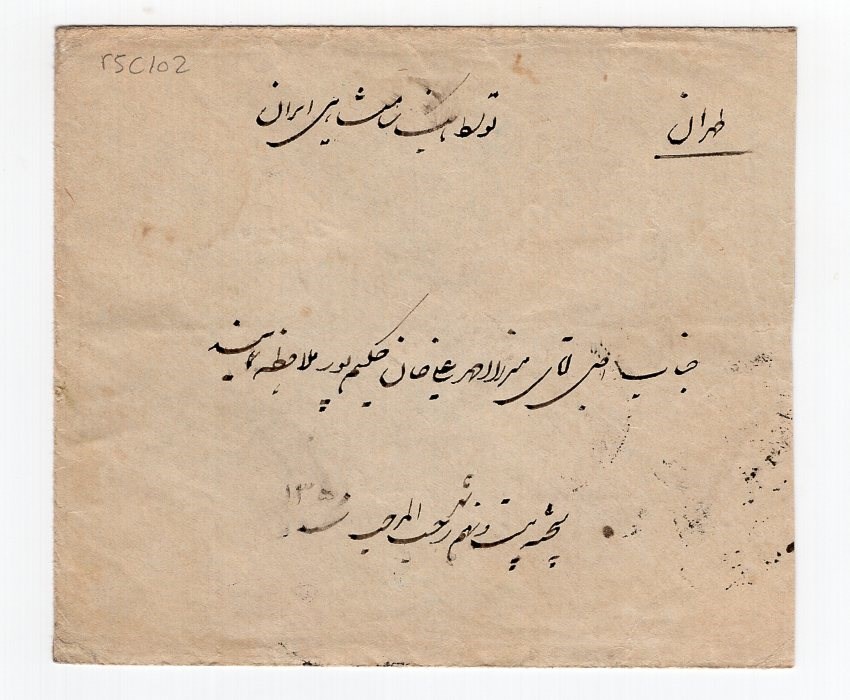 r5C102
طهران
توسط بانک شاهی ایران
جناب اجل آقای میرزا مهر علیخان حکیم پور ملاحظه نمایند
پنجشنبه بیست و نهم شهر رجب المرجب ۱۳۵